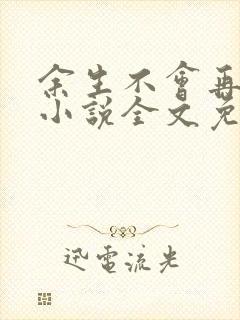 余生不會再
小說全文免
迅電流光